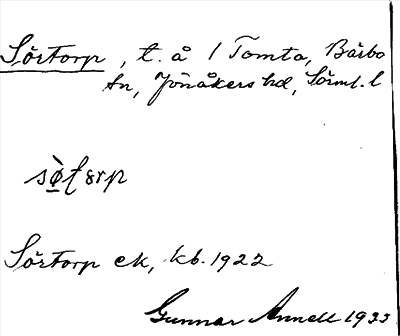 Sörtorp, t. å 1 Tomta, Bärbo
sn, Jönåkers hd, Sörml. l
Sörtorp ek, kb. 1922
Gunnar Annell 1935